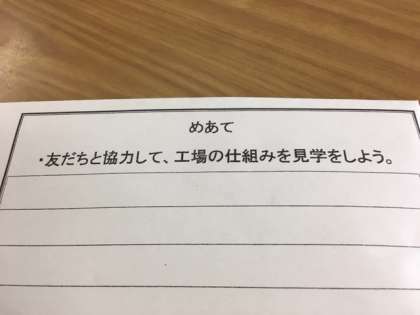 めあて
・友だちと協力して、工場の仕組みを見学をしよう。